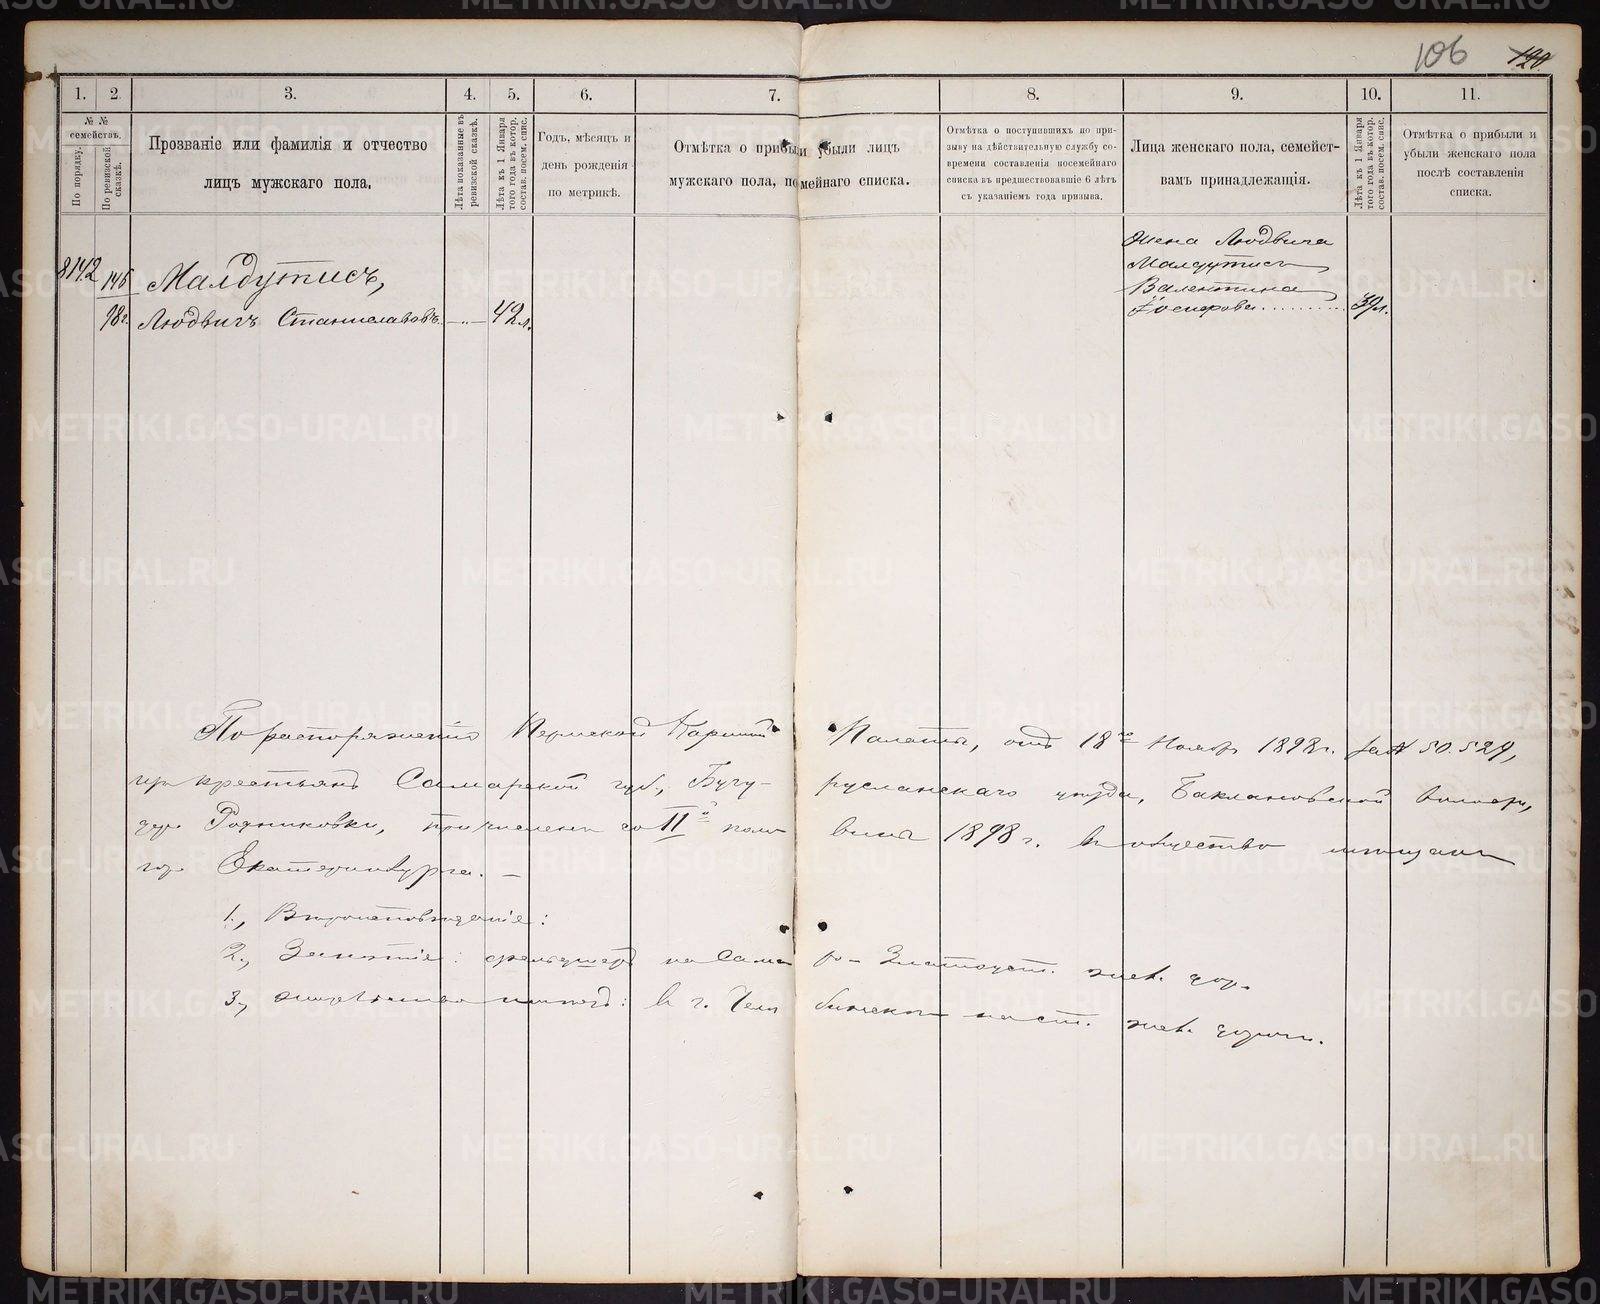 106 120
1. 2. 3. 4. 5. 6. 7. 8. 9. 10. 11.
№ № семействъ.
По порядку.
По ревизской сказкѣ.
Прозваніе или фамилія и отчество
лицъ мужскаго пола.
Лѣта показанные въ ревизской сказкѣ.
Лѣта къ 1 Января того года въ котор. состав. посем. спис.
Годъ, мѣсяцъ и
день рожденія
по метрикѣ.
Отмѣтка о прибыли убыли лицъ
мужскаго пола, посемейнаго списка.
Отмѣтка о поступившихъ по при-
зыву на дѣйствительную службу со-
времени составленія посемейнаго
списка въ предшествовавшіе 6 лѣтъ
съ указаніемъ года призыва.
Лица женскаго пола, семейст-
вамъ принадлежащія.
Лѣта къ 1 Января того года въ котор. состав. посем. спис.
Отмѣтка о прибыли и
убыли женскаго пола
послѣ составленія
списка.
8142 146 Малдутисъ,
98г. Людвигъ Станиславовъ. —"— 42л.
Жена Людвига
Малдутисъ
Валентина
Іосифова 39л.
По распоряженію Пермской Казенной Палаты, отъ 18го Ноября 1898г. за № 50.529,
крестьянъ Самарской губ., Бугу-
русланскаго уѣзда, Баклановской волости,
дер. Родниковки, причислены со IIй поло-
вины 1898г. въ общество мѣщанъ
гор. Екатеринбурга. —
1., Вѣроисповѣданіе:
2., Занятіе: фельдшеръ на Сама-
ро-Златоуст. жел. дор.
3., жительство имѣетъ: въ г. Челя-
бинскѣ на ст. жел. дороги.
METRIKI.GASO-URAL.RU